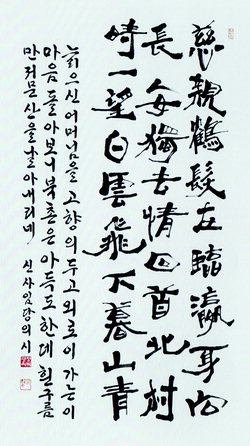 慈親鶴髮在臨瀛身向
長安獨去情回首北村
時一望白雲飛下暮山青
늙으신 어머님을 고향의 두고 외로이 가는 이
마음 돌아보니 북촌은 아득도 한데 흰구름
만 저문 산을 날아 내리네, 신사임당의 시